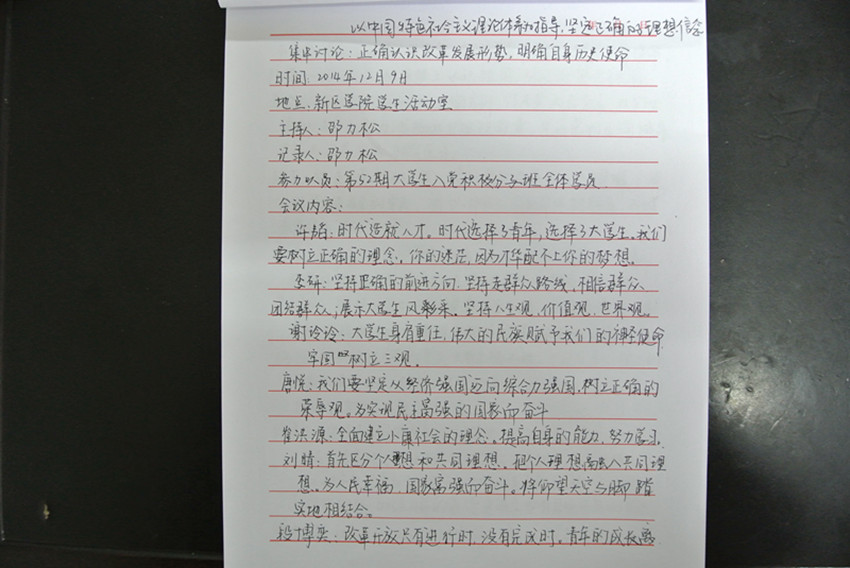 以中国特色社会主义理论体系为指导,坚定正确的理想信念
集中讨论:正确认识改革发展形势,明确自身历史使命
时间:2014年12月9日
地点:新区学院学生活动室
主持人:邵力松
记录人:邵力松
参加人员:第52期大学生入党积极分子班全体学员
会议内容:
许韬:时代造就人才。时代选择了青年,选择了大学生。我们
要树立正确的理念。你的迷茫,因为才华配不上你的梦想。
李研:坚持正确的前进方向,坚持走群众路线,相信群众
团结群众;展示大学生风采。坚持人生观、价值观、世界观。
谢玲玲:大学生身肩重任,伟大的民族赋予我们的神圣使命
牢固树立三观。
唐悦:我们要坚定从经济强国迈向综合力强国,树立正确的
荣辱观。为实现民主富强的国家而奋斗
崔洪源:全面建立小康社会的理念。提高自身的能力,努力学习.
刘婧:首先区分个人理想和共同理想。把个人理想融入共同理
想。为人民幸福、国家富强而奋斗。将仰望天空与脚踏
实地相结合。
段博奕:改革开放只有进行时,没有完成时。青年的成长离